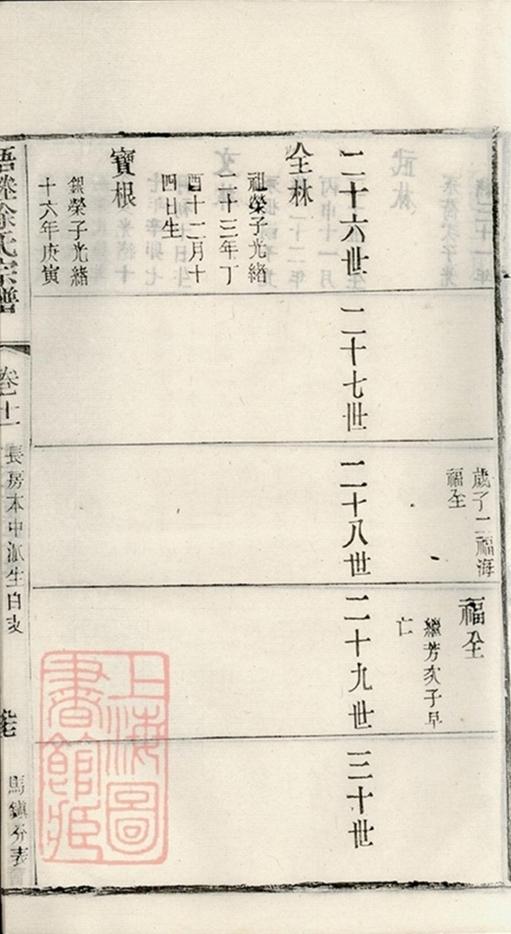 歲子二福海
福全
福全
繼芳次子早
亡
二十六世
二十七世
二十八世
二十九世
三十世
全林
祖榮子光緒
二十三年丁
酉十二月十
四日生
寶根
銀榮子光緒
十六年庚寅
梧塍徐氏宗譜
卷十一
長房本中派生白支
馬鎮分表
上海圖
書館藏